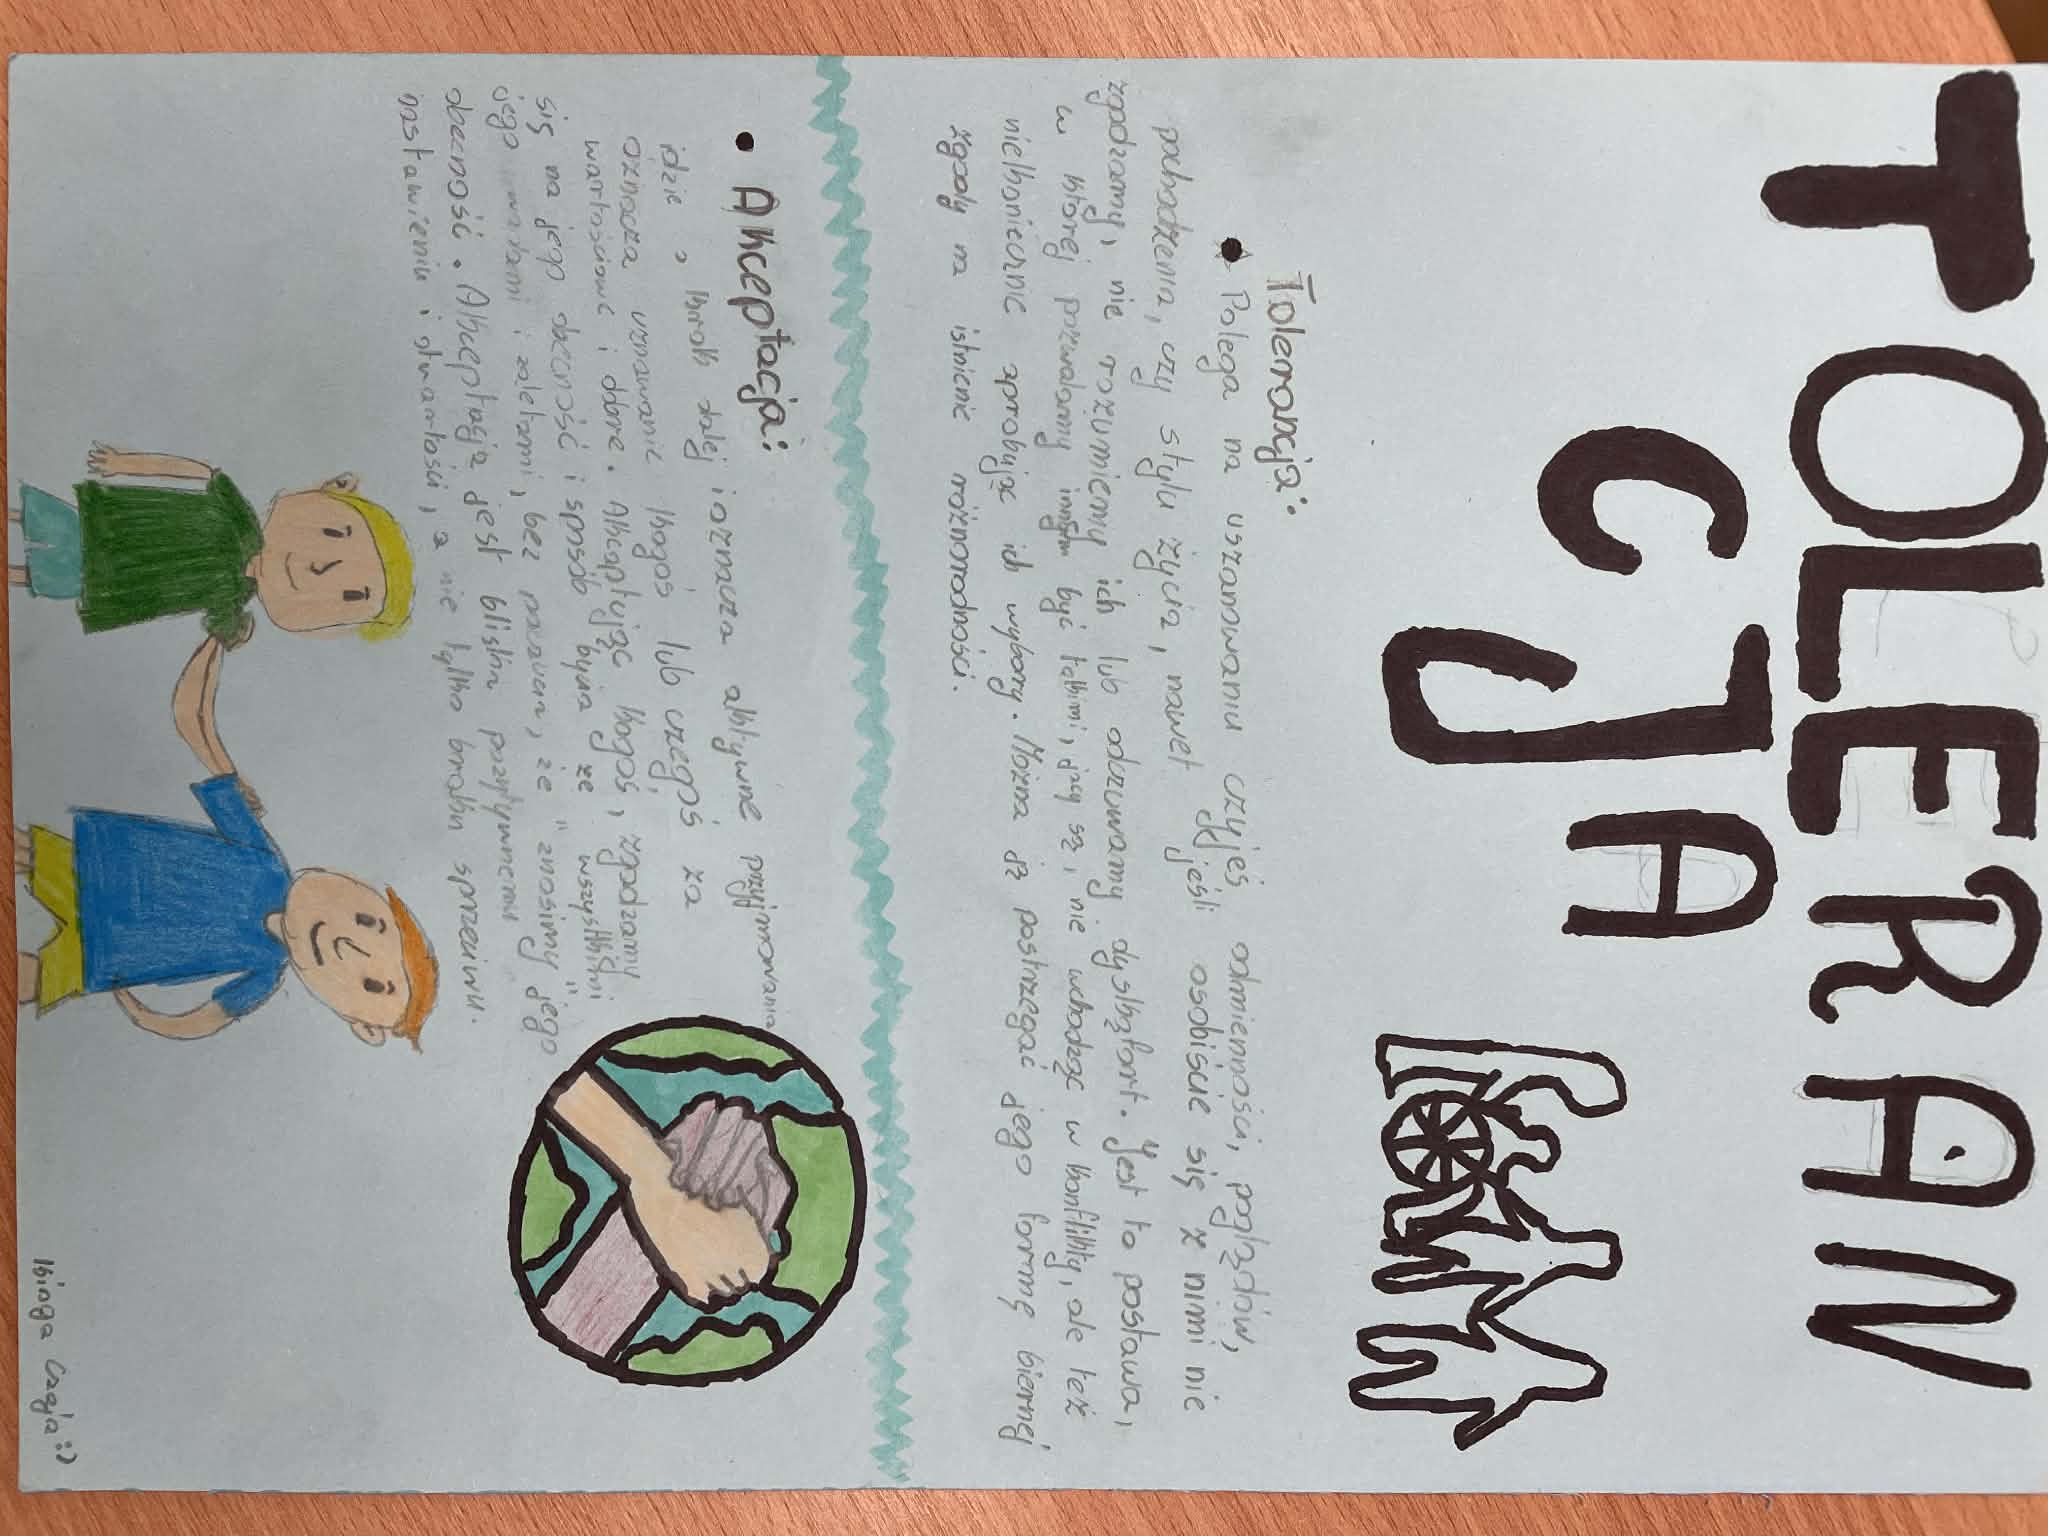 TOLERAN
CJA
Tolerancja:
• Polega na uszanowaniu czyjeś odmienności, poglądów,
pochodzenia, czy stylu życia, nawet jeśli osobiście się z nimi nie
zgadzamy, nie rozumiemy ich lub odczuwamy dyskąfort. Jest to postawa,
w której pozwalamy innym być takimi, jacy są, nie wchodząc w konflikty, ale też
niekoniecznie aprobując ich wybory. Można ją postrzegać jego formę biernej
zgody na istnienie różnorodności.
• Akceptacja:
idzie o krok dalej i oznacza aktywne przyjmowania
oznacza uznawanie kogoś lub czegoś za
wartościowe i dobre. Akceptując kogoś, zgadzamy
się na jego obecność i sposób bycia ze wszystkimi
jego wadami i zaletami, bez poczucia, że "znosimy" jego
obecność. Akceptacja jest bliska pozytywnemu
nastawieniu i otwartości, a nie tylko braku sprzeciwu.
Kinga Czaja :)